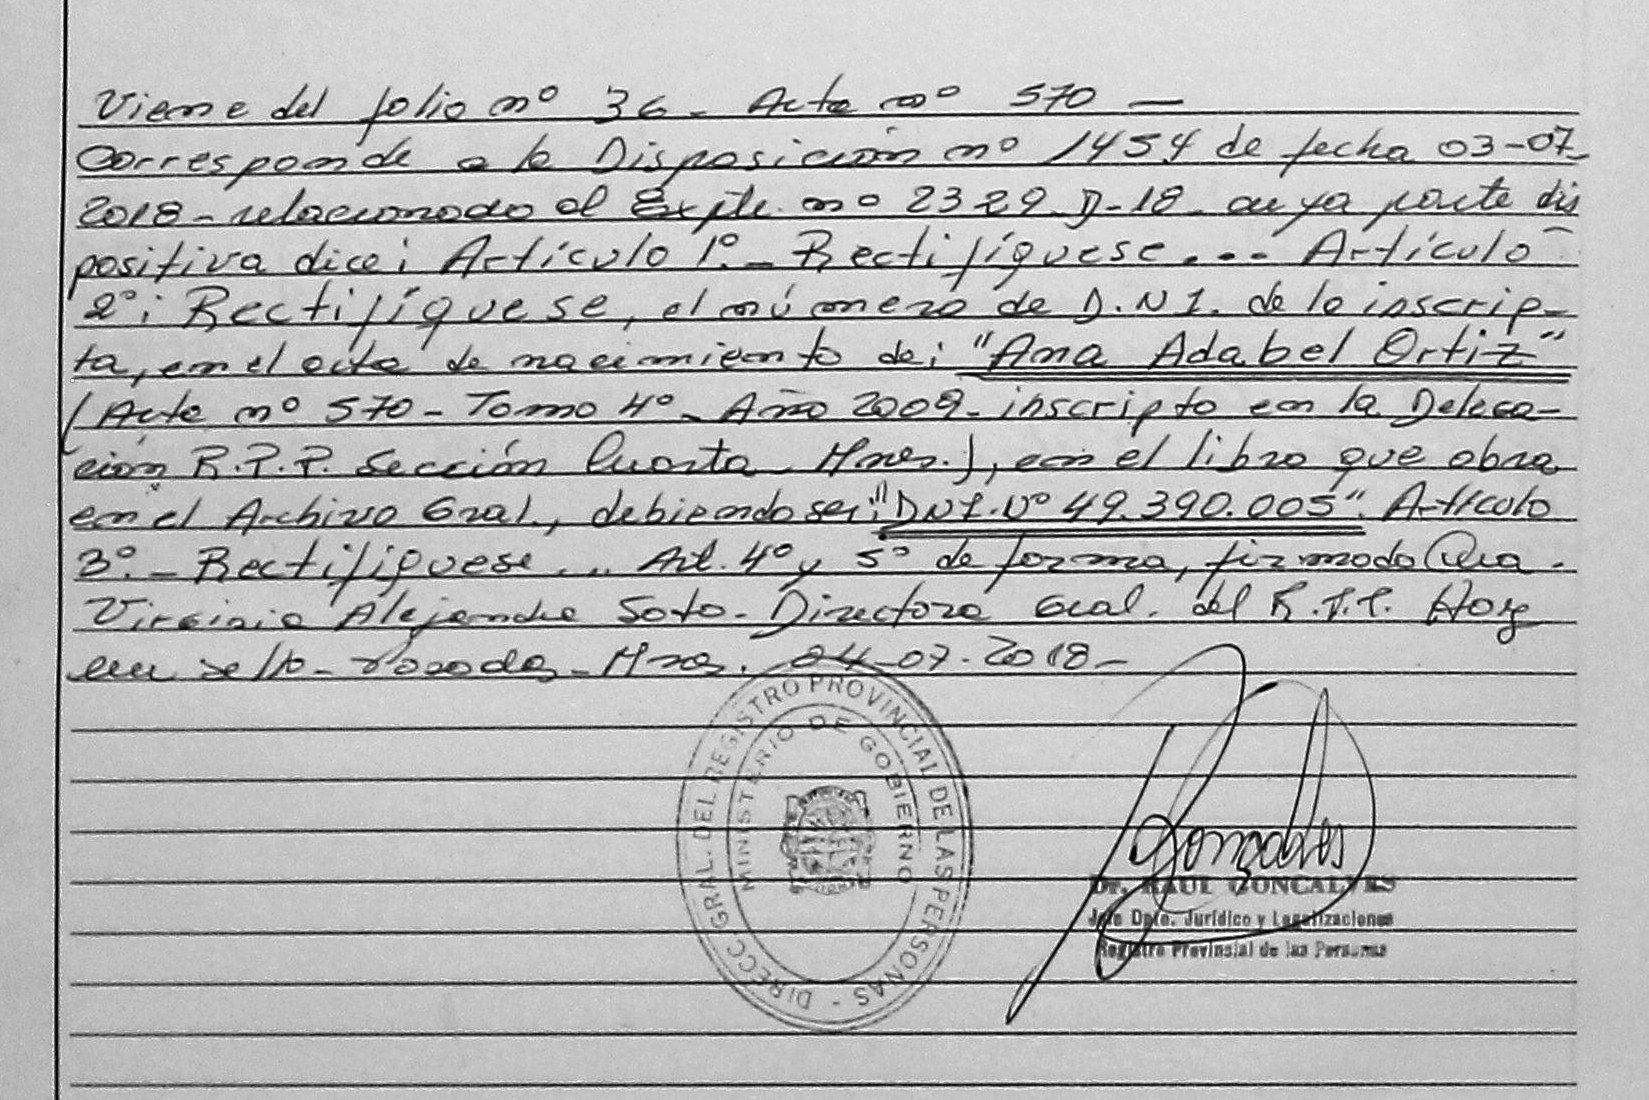 Viene del folio nº 36 - Acta nº 570 —
Corresponde a la Disposición nº 1454 de fecha 03-07-
2018 - relacionado al Expte. nº 2329-D-18 - cuya parte dis
positiva dice: Artículo 1º.- Rectifíquese ... Artículo
2º: Rectifíquese, el número de D.N.I. de la inscrip-
ta, en el acta de nacimiento de: "Ana Adabel Ortiz"
(Acta nº 570 - Tomo 4º - Año 2009 - inscripto en la Delega-
ción R.P.P. Sección Cuarta - Mnes.), en el libro que obra
en el Archivo Gral., debiendo ser: "D.N.I. Nº 49.390.005". Artículo
3º.- Rectifíquese ... Art. 4º y 5º de forma, firmado
Virginia Alejandra Soto - Directora Gral. del R.P.P. Hay
un sello - Posadas - Mnes. 04-07-2018 -
DIRECC GRAL. DEL REGISTRO PROVINCIAL DE LAS PERSONAS -
MINISTERIO DE GOBIERNO
Goncalves
Dr. RAUL GONCALVES
Jefe Dpto. Jurídico y Legalizaciones
Registro Provinsial de las Personas